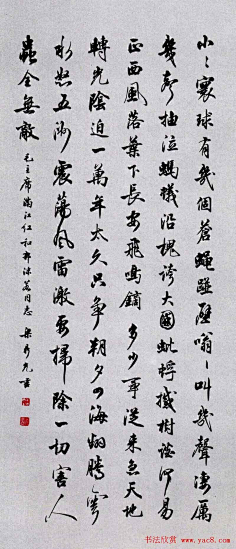 小小寰球有几個蒼蠅碰壁嗡嗡叫幾聲淒厲
幾聲抽泣螞蟻沿槐誇大國蚍蜉撼樹談何易
正西風落葉下長安飛鳴鏑多少事從来急天地
轉光陰迫一萬年太久只争朝夕四海翻騰雲
水怒五洲震蕩風雷激要掃除一切害人
蟲全無敵
毛主席滿江红和郭沫若同志
书法欣赏 www.yac8.com